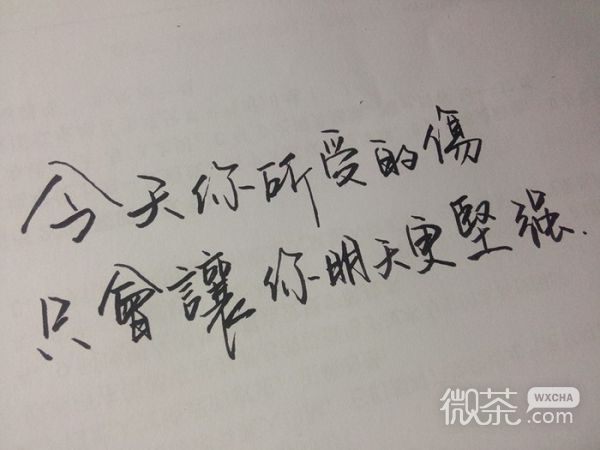 今天你所受的傷
只會讓你明天更堅强.
微茶 WXCHA
.com